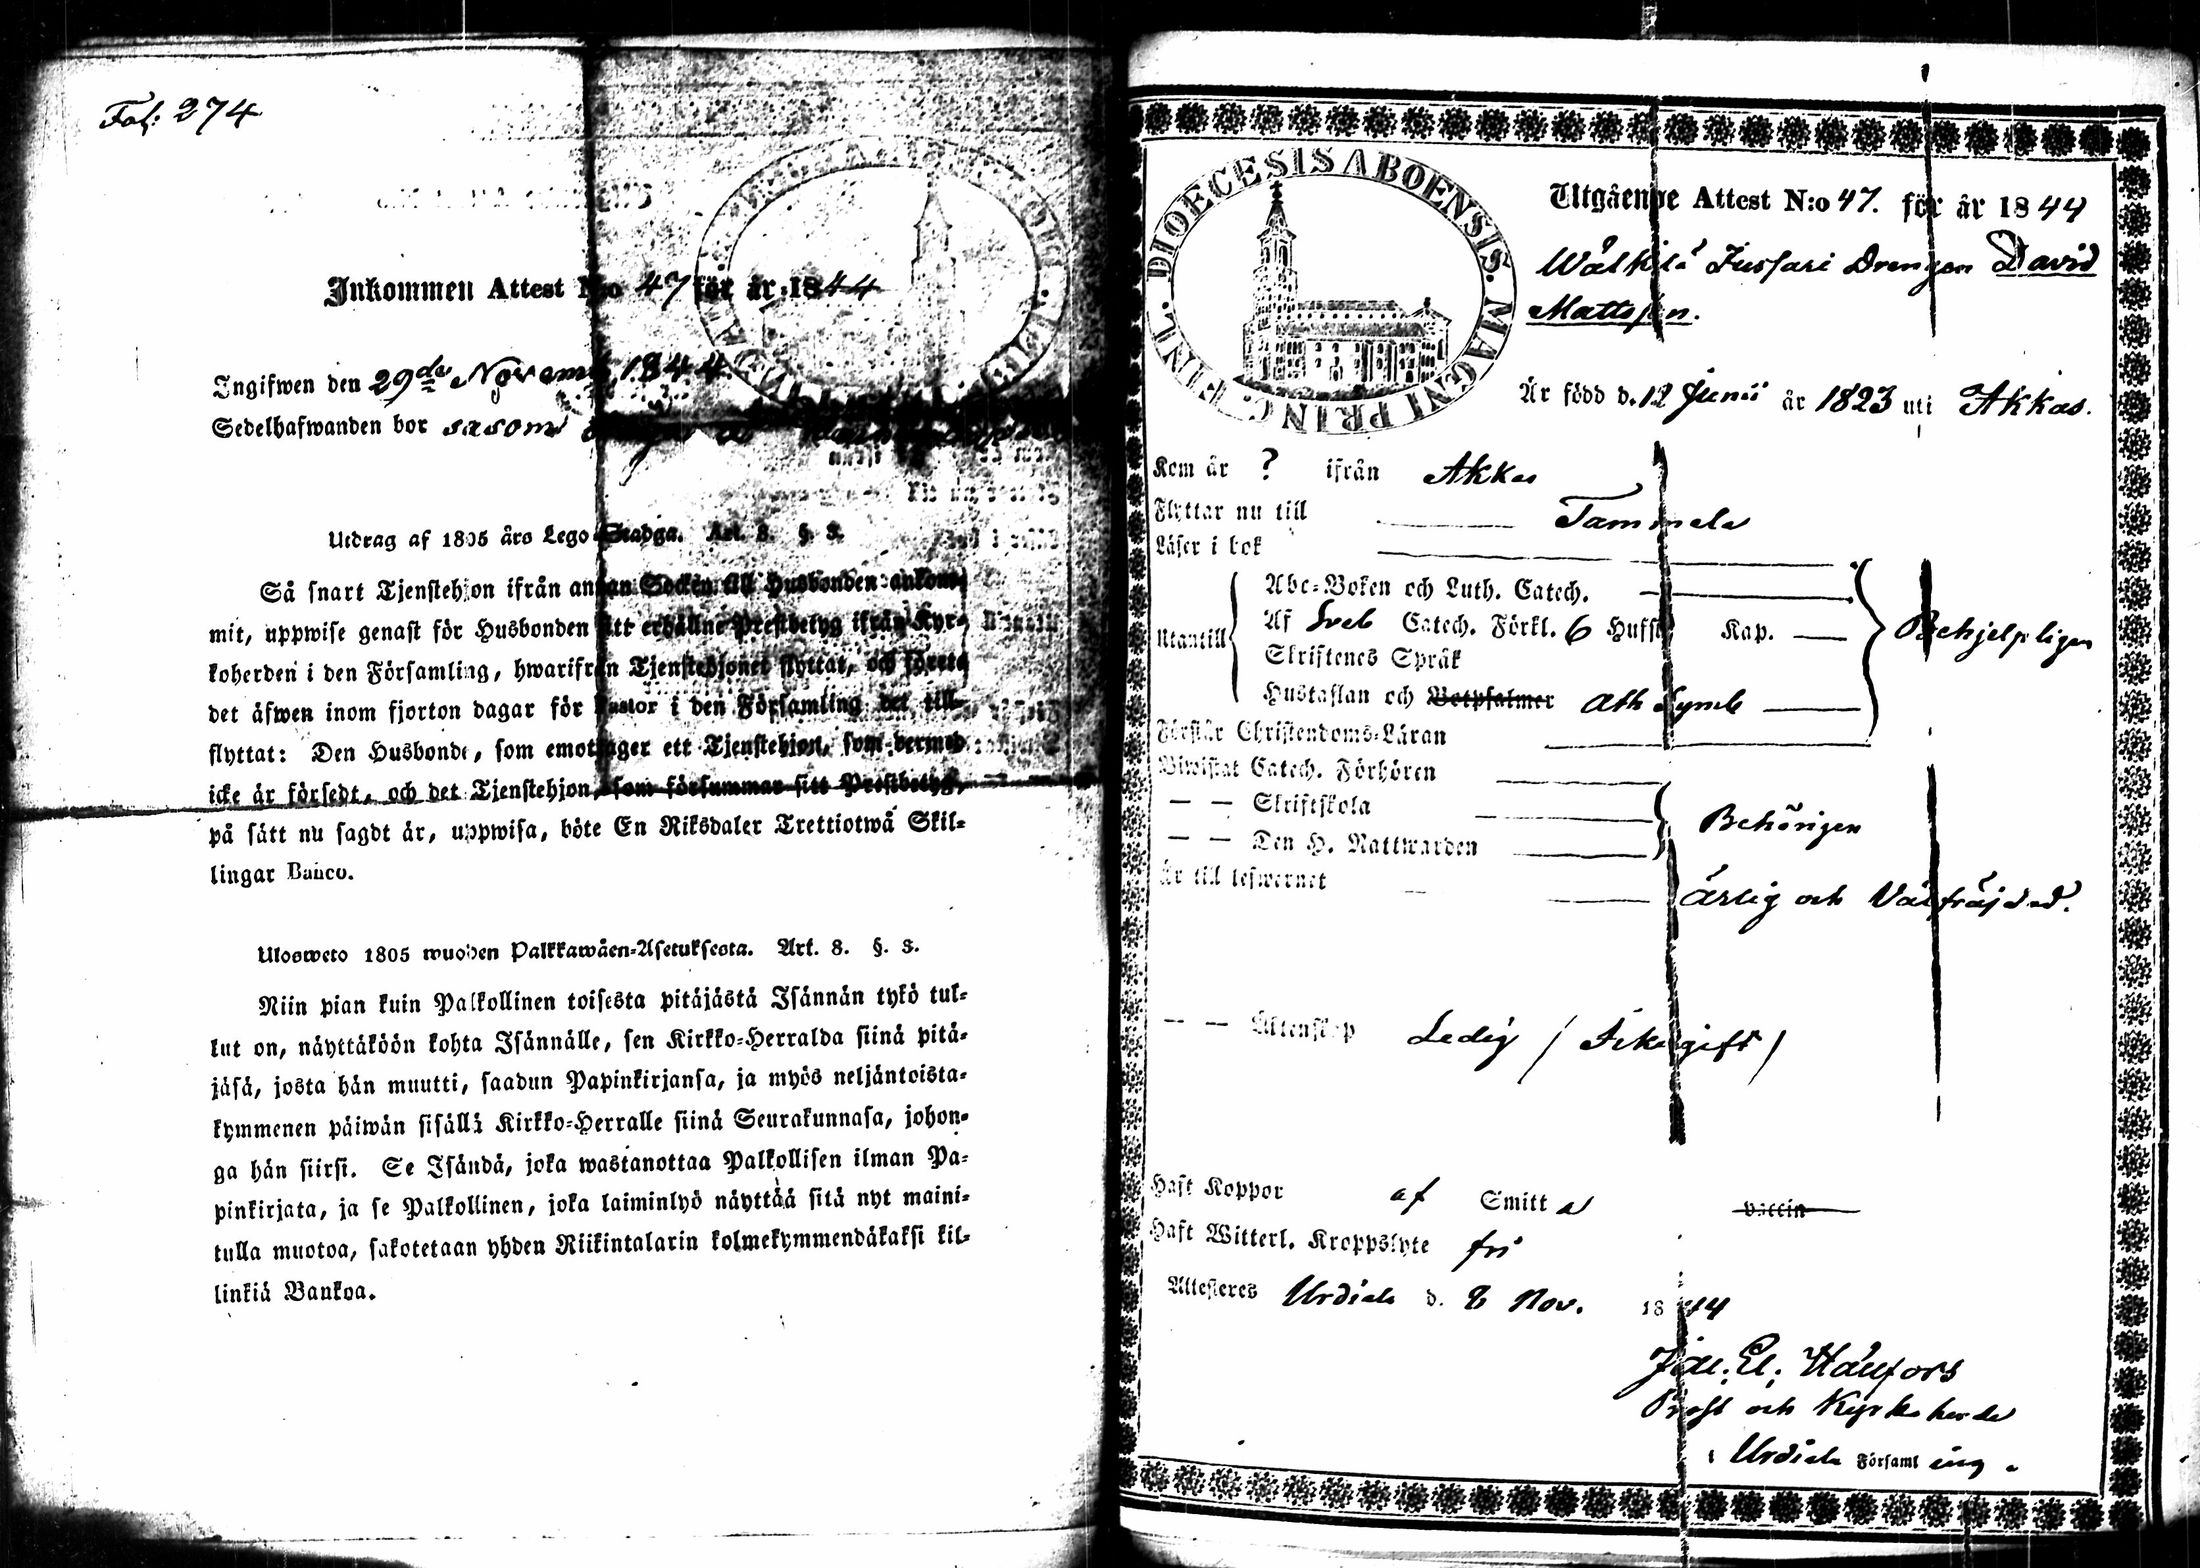 Fol: 274
Inkommen Attest N:o 47 för år 1844
Ingifwen den 29de Novemb. 1844.
Sedelhafwanden bor såsom
Utdrag af 1805 års Lego-Stadga. Art. 8. §. 3.
Så snart Tjenstehjon ifrån annan Socken till Husbonden ankom-
mit, uppwise genast för Husbonden sitt erhållne Prestbetyg ifrån Kyr-
koherden i den Församling, hwarifrån Tjenstehjonet flyttat, och förete
det äfwen inom fjorton dagar för Pastor i den Församling det till-
flyttat: Den Husbonde, som emottager ett Tjenstehjon, som dermed
icke är försedt, och det Tjenstehjon, som försummar sitt Prestbetyg,
på sätt nu sagdt är, uppwisa, böte En Riksdaler Trettiotwå Skil-
lingar Banco.
Ulosweto 1805 wuoden Palkkawäen-Asetuksesta. Art. 8. §. 3.
Niin pian kuin Palkollinen toisesta pitäjästä Isännän tykö tul-
lut on, näyttäköön kohta Isännälle, sen Kirkko-Herralda siinä pitä-
jäsä, josta hän muutti, saadun Papinkirjansa, ja myös neljäntoista-
kymmenen päiwän sisällä Kirkko-Herralle siinä Seurakunnasa, johon-
ga hän siirsi. Se Isändä, joka wastanottaa Palkollisen ilman Pa-
pinkirjata, ja se Palkollinen, joka laiminlyö näyttää sitä nyt maini-
tulla muotoa, sakotetaan yhden Riikintalarin kolmekymmendäkaksi kil-
linkiä Bankoa.
DIOECESIS ABOENSIS. MAGNI PRINC. FINL.
Utgående Attest N:o 47. för år 1844
Wälkilä Jussari Drengen David
Mattsson.
Är född d. 12 Junii år 1823 uti Akkas.
Kom år ? ifrån Akkas
Flyttar nu till Tammela
Läser i bok
Utantill
Abc-Boken och Luth. Catech.
Af Sveb Catech. Förkl. 6 Hufst Kap. Behjelpligen
Skriftenes Språk
Hustaflan och Botpsalmer Ath Symb
Förstår Christendoms-Läran
Biwistat Catech. Förhören
— — Skriftskola Behörigen
— — Den H. Nattwarden
Är till lefwernet ärlig och Välfräjdad.
— — Äktenskap Ledig / Icke gift /
Haft Koppor af Smitta vaccin
Haft Witterl. Kroppslyte fri
Attesteres Urdiala d. 8 Nov. 1844
Prost och Kyrkoherde
i Urdiala Församling.